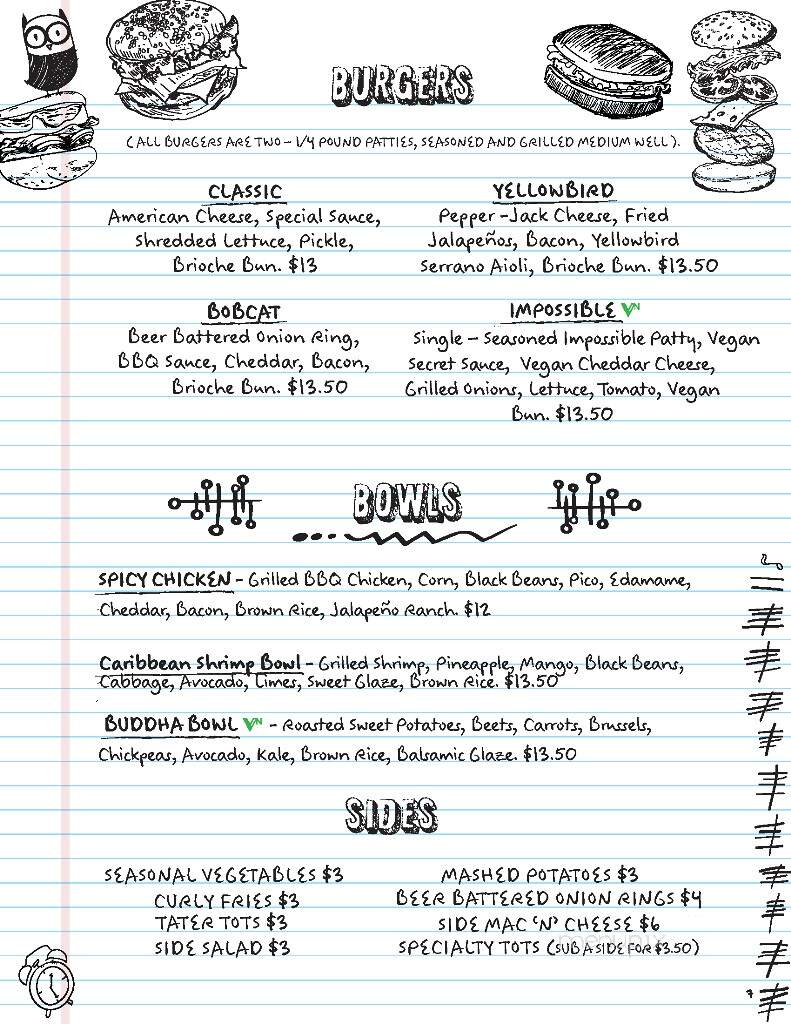 BURGERS
(ALL BURGERS ARE TWO - 1/4 POUND PATTIES, SEASONED AND GRILLED MEDIUM WELL).
CLASSIC
American Cheese, Special Sauce,
Shredded Lettuce, Pickle,
Brioche Bun. $13
YELLOWBIRD
Pepper-Jack Cheese, Fried
Jalapeños, Bacon, Yellowbird
Serrano Aioli, Brioche Bun. $13.50
BOBCAT
Beer Battered Onion Ring,
BBQ Sauce, Cheddar, Bacon,
Brioche Bun. $13.50
IMPOSSIBLE VN
Single - Seasoned Impossible Patty, Vegan
Secret Sauce, Vegan Cheddar Cheese,
Grilled Onions, Lettuce, Tomato, Vegan
Bun. $13.50
BOWLS
SPICY CHICKEN - Grilled BBQ Chicken, Corn, Black Beans, Pico, Edamame,
Cheddar, Bacon, Brown Rice, Jalapeño Ranch. $12
Caribbean Shrimp Bowl - Grilled Shrimp, Pineapple, Mango, Black Beans,
Cabbage, Avocado, Limes, Sweet Glaze, Brown Rice. $13.50
BUDDHA BOWL VN - Roasted Sweet Potatoes, Beets, Carrots, Brussels,
Chickpeas, Avocado, Kale, Brown Rice, Balsamic Glaze. $13.50
SIDES
SEASONAL VEGETABLES $3
CURLY FRIES $3
TATER TOTS $3
SIDE SALAD $3
MASHED POTATOES $3
BEER BATTERED ONION RINGS $4
SIDE MAC 'N' CHEESE $6
SPECIALTY TOTS (SUB A SIDE FOR $3.50)
menupix
7